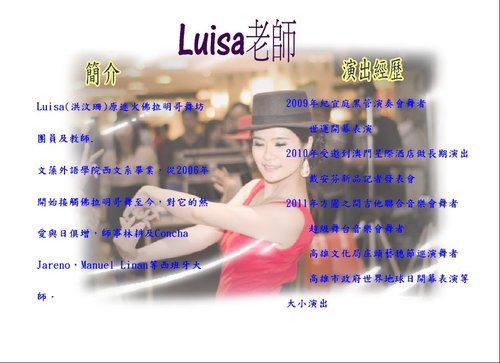 Luisa老師
簡介
Luisa(洪汶珊)原達火佛拉明哥舞坊
團員及教師.
文藻外語學院西文系畢業，從2006年
開始接觸佛拉明哥舞至今，對它的熱
愛與日俱增，師事林耕及Concha
Jareno，Manuel Linan等西班牙大
師.
演出經歷
2009年紀宜庭黑管演奏會舞者
世運開幕表演
2010年受邀到澳門星際酒店做長期演出
戴安芬新品記者發表會
2011年方圓之間吉他聯合音樂會舞者
超級舞台音樂會舞者
高雄文化局庄頭藝穗節巡演舞者
高雄市政府世界地球日開幕表演等
大小演出